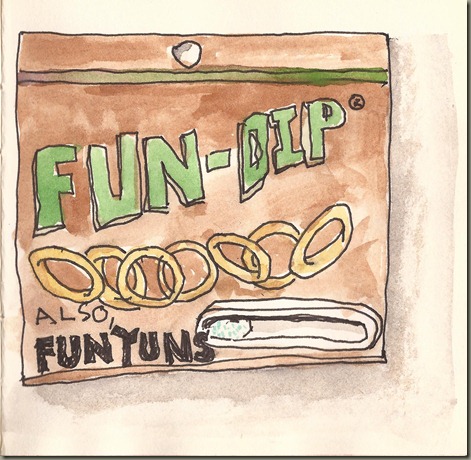 FUN-DIP®
ALSO,
FUNYUNS